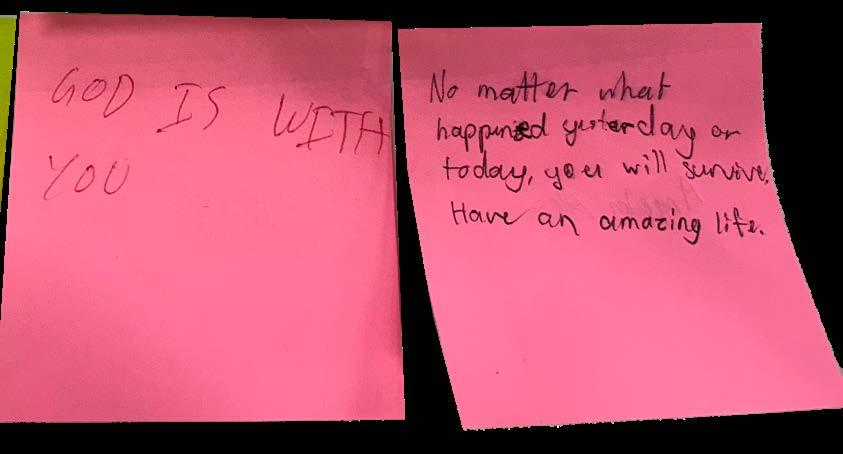 GOD IS WITH
YOU
No matter what
happened yesterday or
today, you will survive.
Have an amazing life.